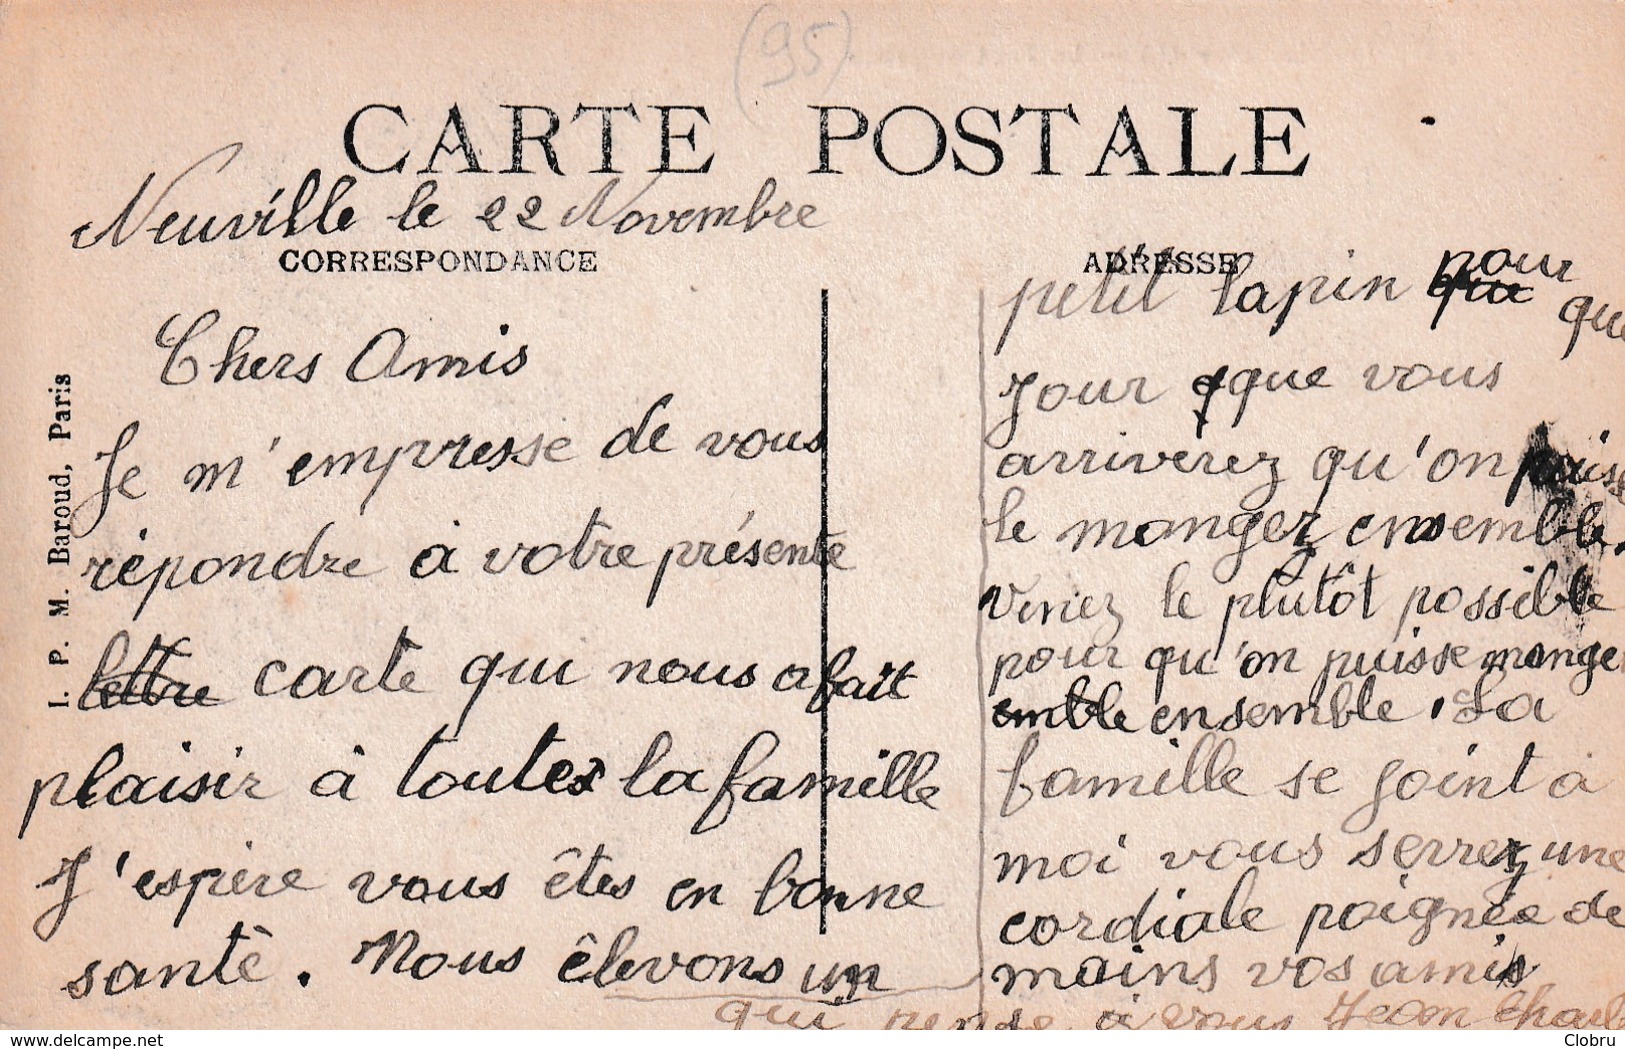 (95)
CARTE POSTALE
Neuville le 22 Novembre
CORRESPONDANCE
Chers Amis
Je m'empresse de vous
répondre à votre présente
lettre carte qui nous a fait
plaisir à toutes la famille
J'espère vous êtes en bonne
santê. Nous êlevons un
I. P. M. Baroud, Paris
ADRESSE
petit lapin que pour que
jour que vous
arriverez qu'on puisse
le manger ensemble.
Veniez le plutôt possible
pour qu'on puisse manger
emble ensemble. La
famille se joint à
moi vous serrez une
cordiale poignée de
mains vos amis
qui pense à vous Jean
delcampe.net
Clobru